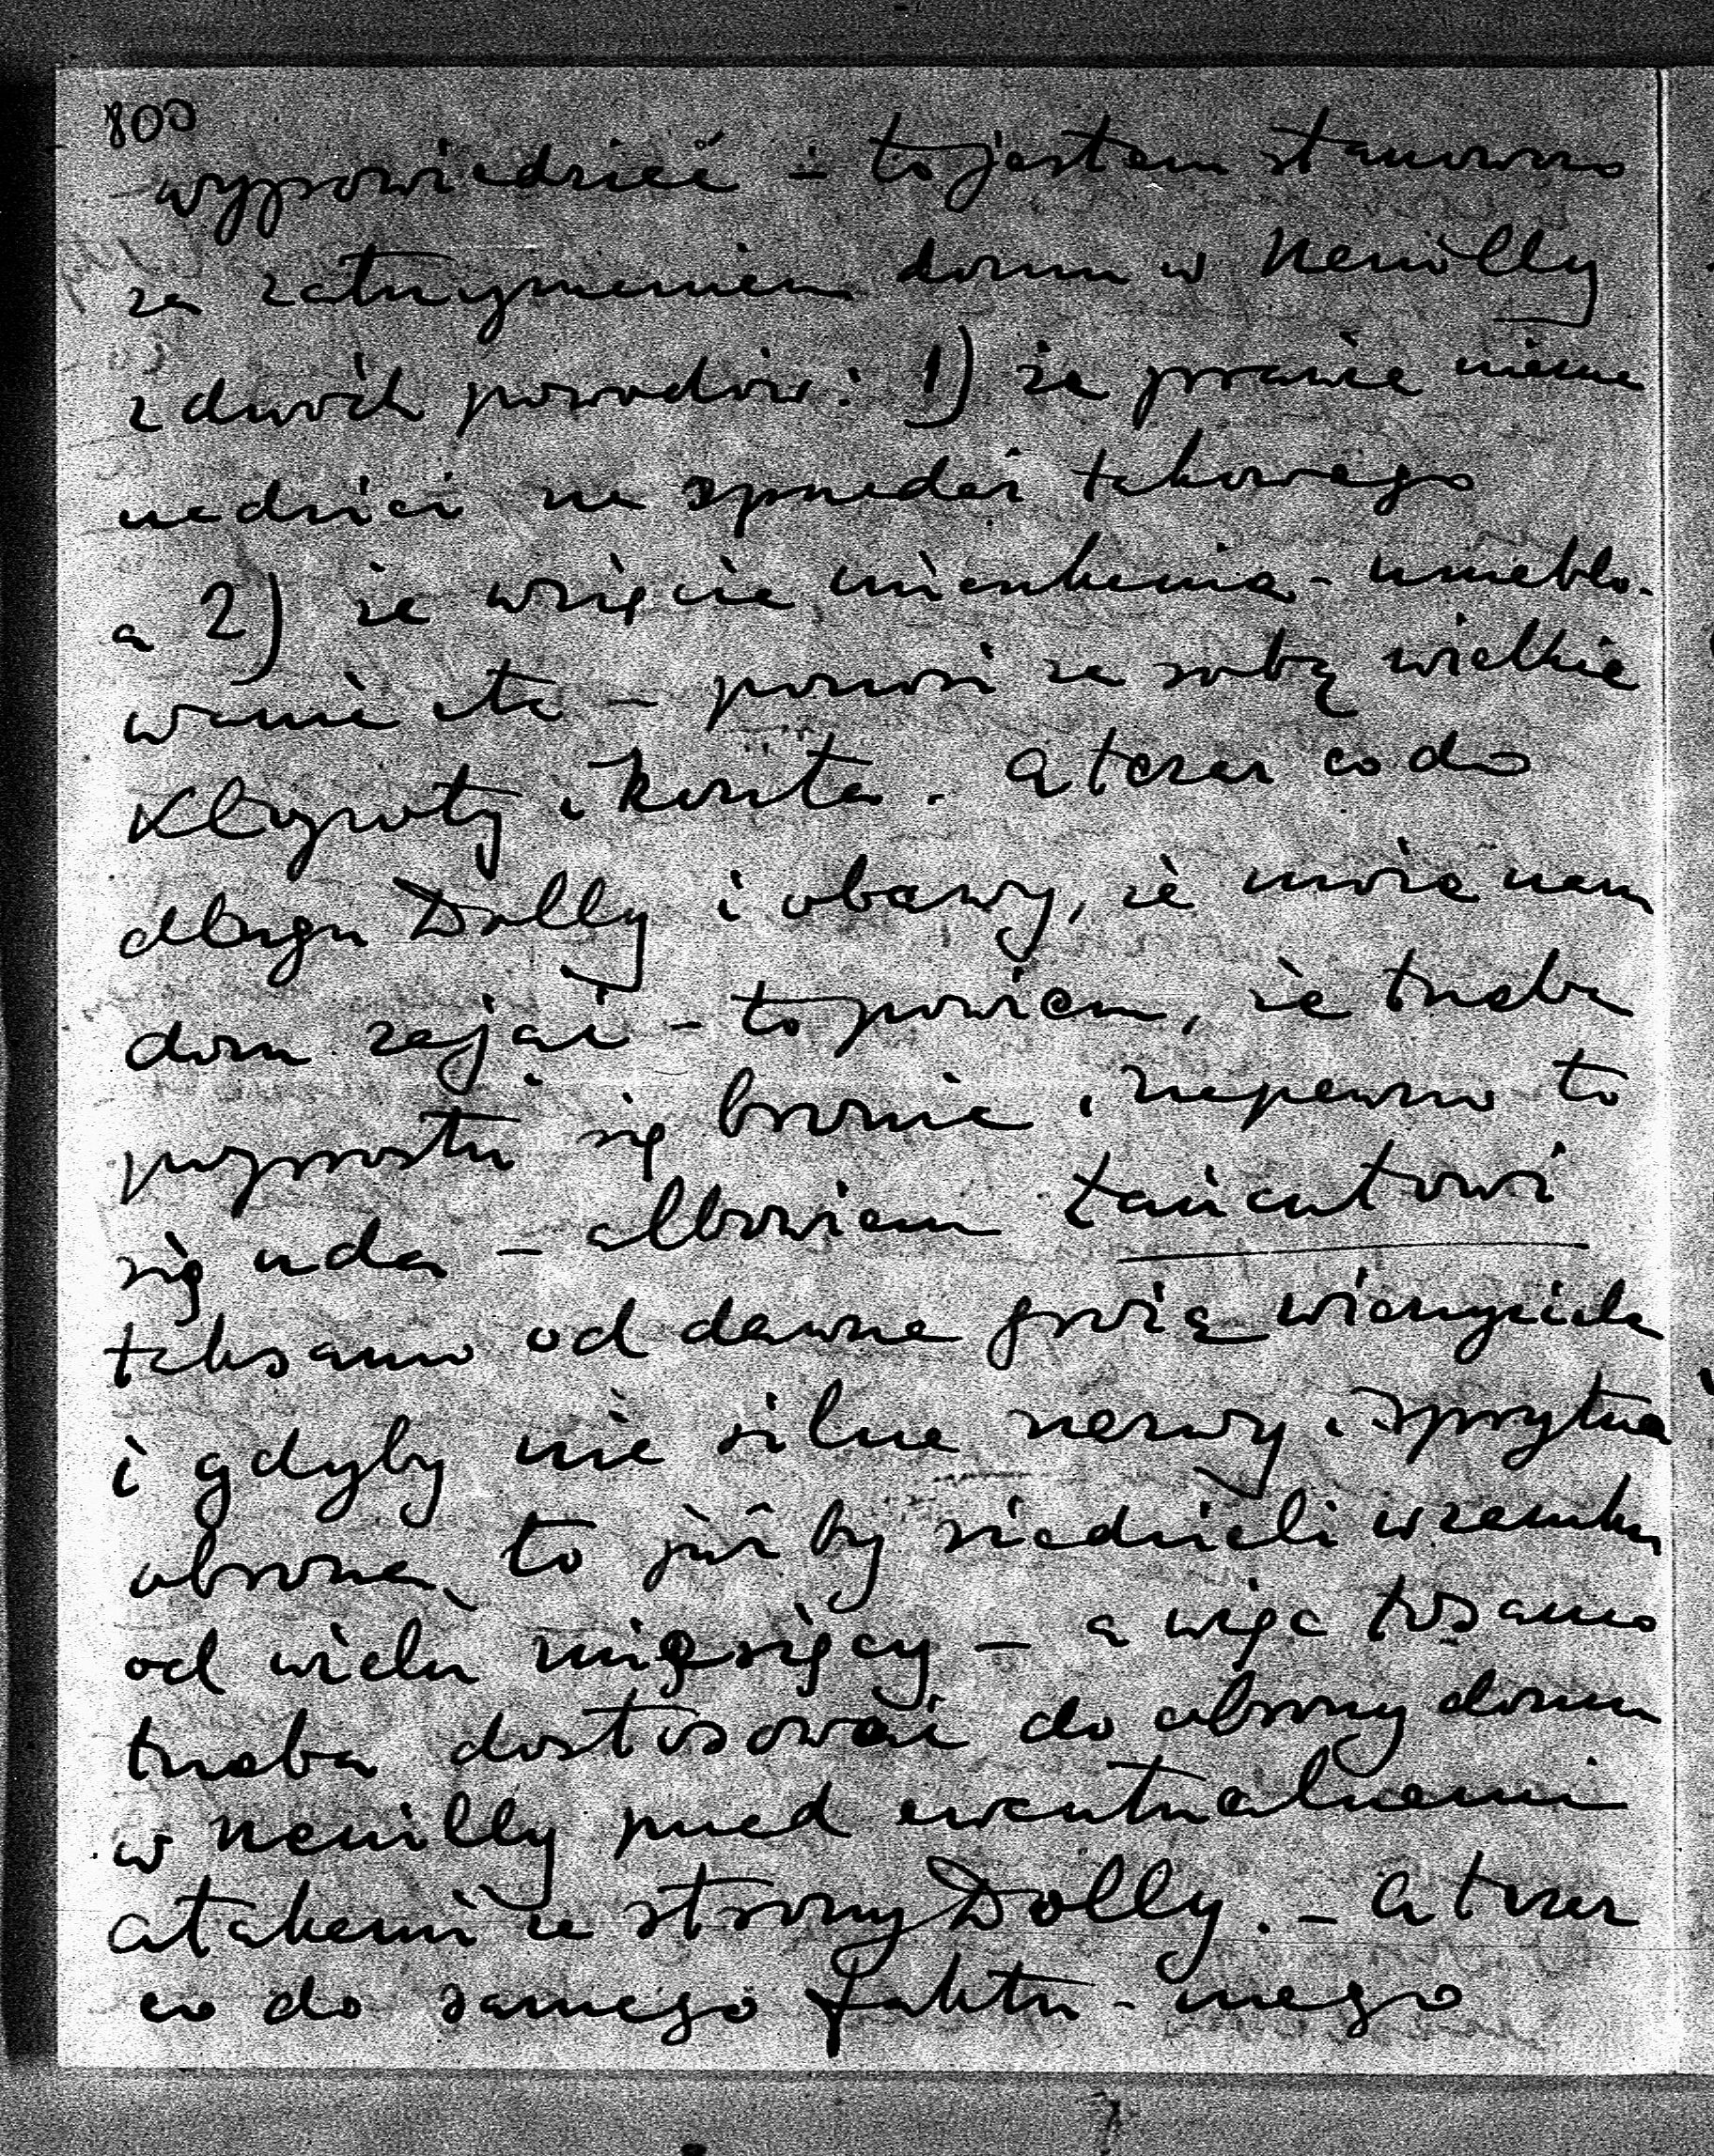 800
wypowiedzieć – to jestem stanowczo
za zatrzymaniem domu w Neuilly
z dwóch powodów: 1) że prawie niema
nadziei na sprzedaż takowego
a 2) że wzięcie mieszkania – umeblo-
wanie etc – ponosi za sobą wielkie
kłopoty i koszta. A teraz co do
długu Dolly i obawy, że może nam
dom zająć – to powiem, że trzeba
poprostu się bronić i napewno to
się uda – albowiem Łańcutowi
taksamo od dawna grożą wierzyciele
i gdyby nie silne nerwy i sprytna
obrona, to już by siedzieli w zamku
od wielu miesięcy – a więc tosamo
trzeba dostosować do obrony domu
w Neuilly przed ewentualnemi
atakami ze strony Dolly. – A teraz
co do samego faktu – mego